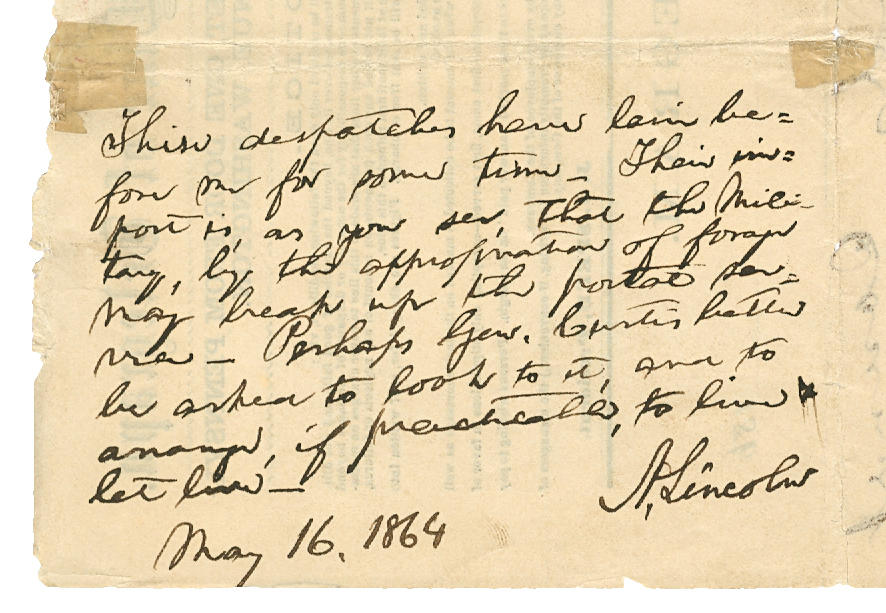 These despatches have lain be=
fore me for some time_ Their im=
port is, as you see, that the Mili-
tary, by the appropriation of forage
may break up the postal ser=
vice_ Perhaps Gen. Curtis better
be asked to look to it, and to
arrange, if practicable, to live &
let live_
A. Lincoln
May 16. 1864